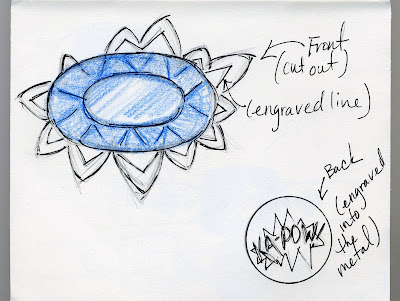 Front
(cut out)
(engraved line)
Back
(engraved
into
the
metal)
KA-POW